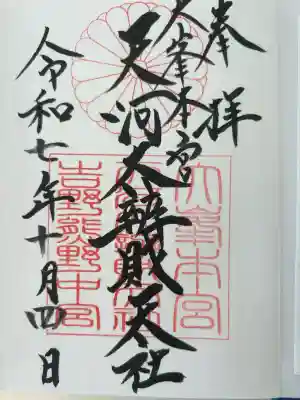 奉拝
大峯本宮
天河大辨財天社
令和七年十月四日
大峯本宮
吉野熊野中宮